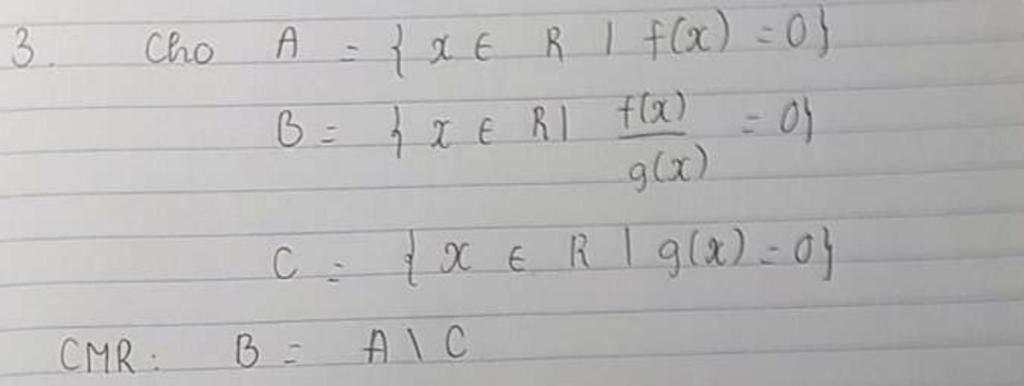 3. Cho A = { x ∈ R | f(x) = 0}
B = { x ∈ R | f(x)/g(x) = 0}
C = { x ∈ R | g(x) = 0}
CMR: B = A \ C